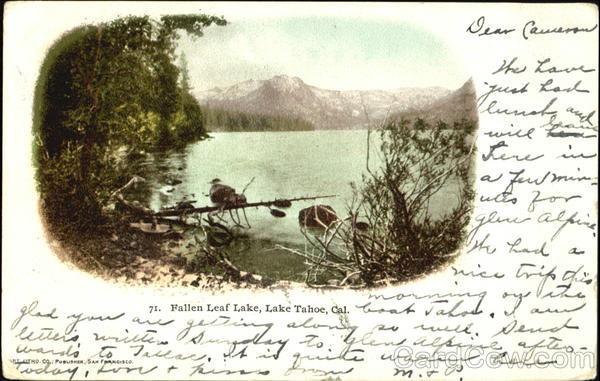 Dear Cameron
We have
just had
lunch and
will leave
here in
a few min-
utes for
Glen Alpine.
We had a
nice trip this
morning on the
boat Tahoe. I am
glad you are getting along so well. Send
letters written Sunday to Glen Alpine after-
wards to Tallac. It is quite
today, love & kisses from M.
71. Fallen Leaf Lake, Lake Tahoe, Cal.
LITHO. CO., PUBLISHER, SAN FRANCISCO.
CardCow.com